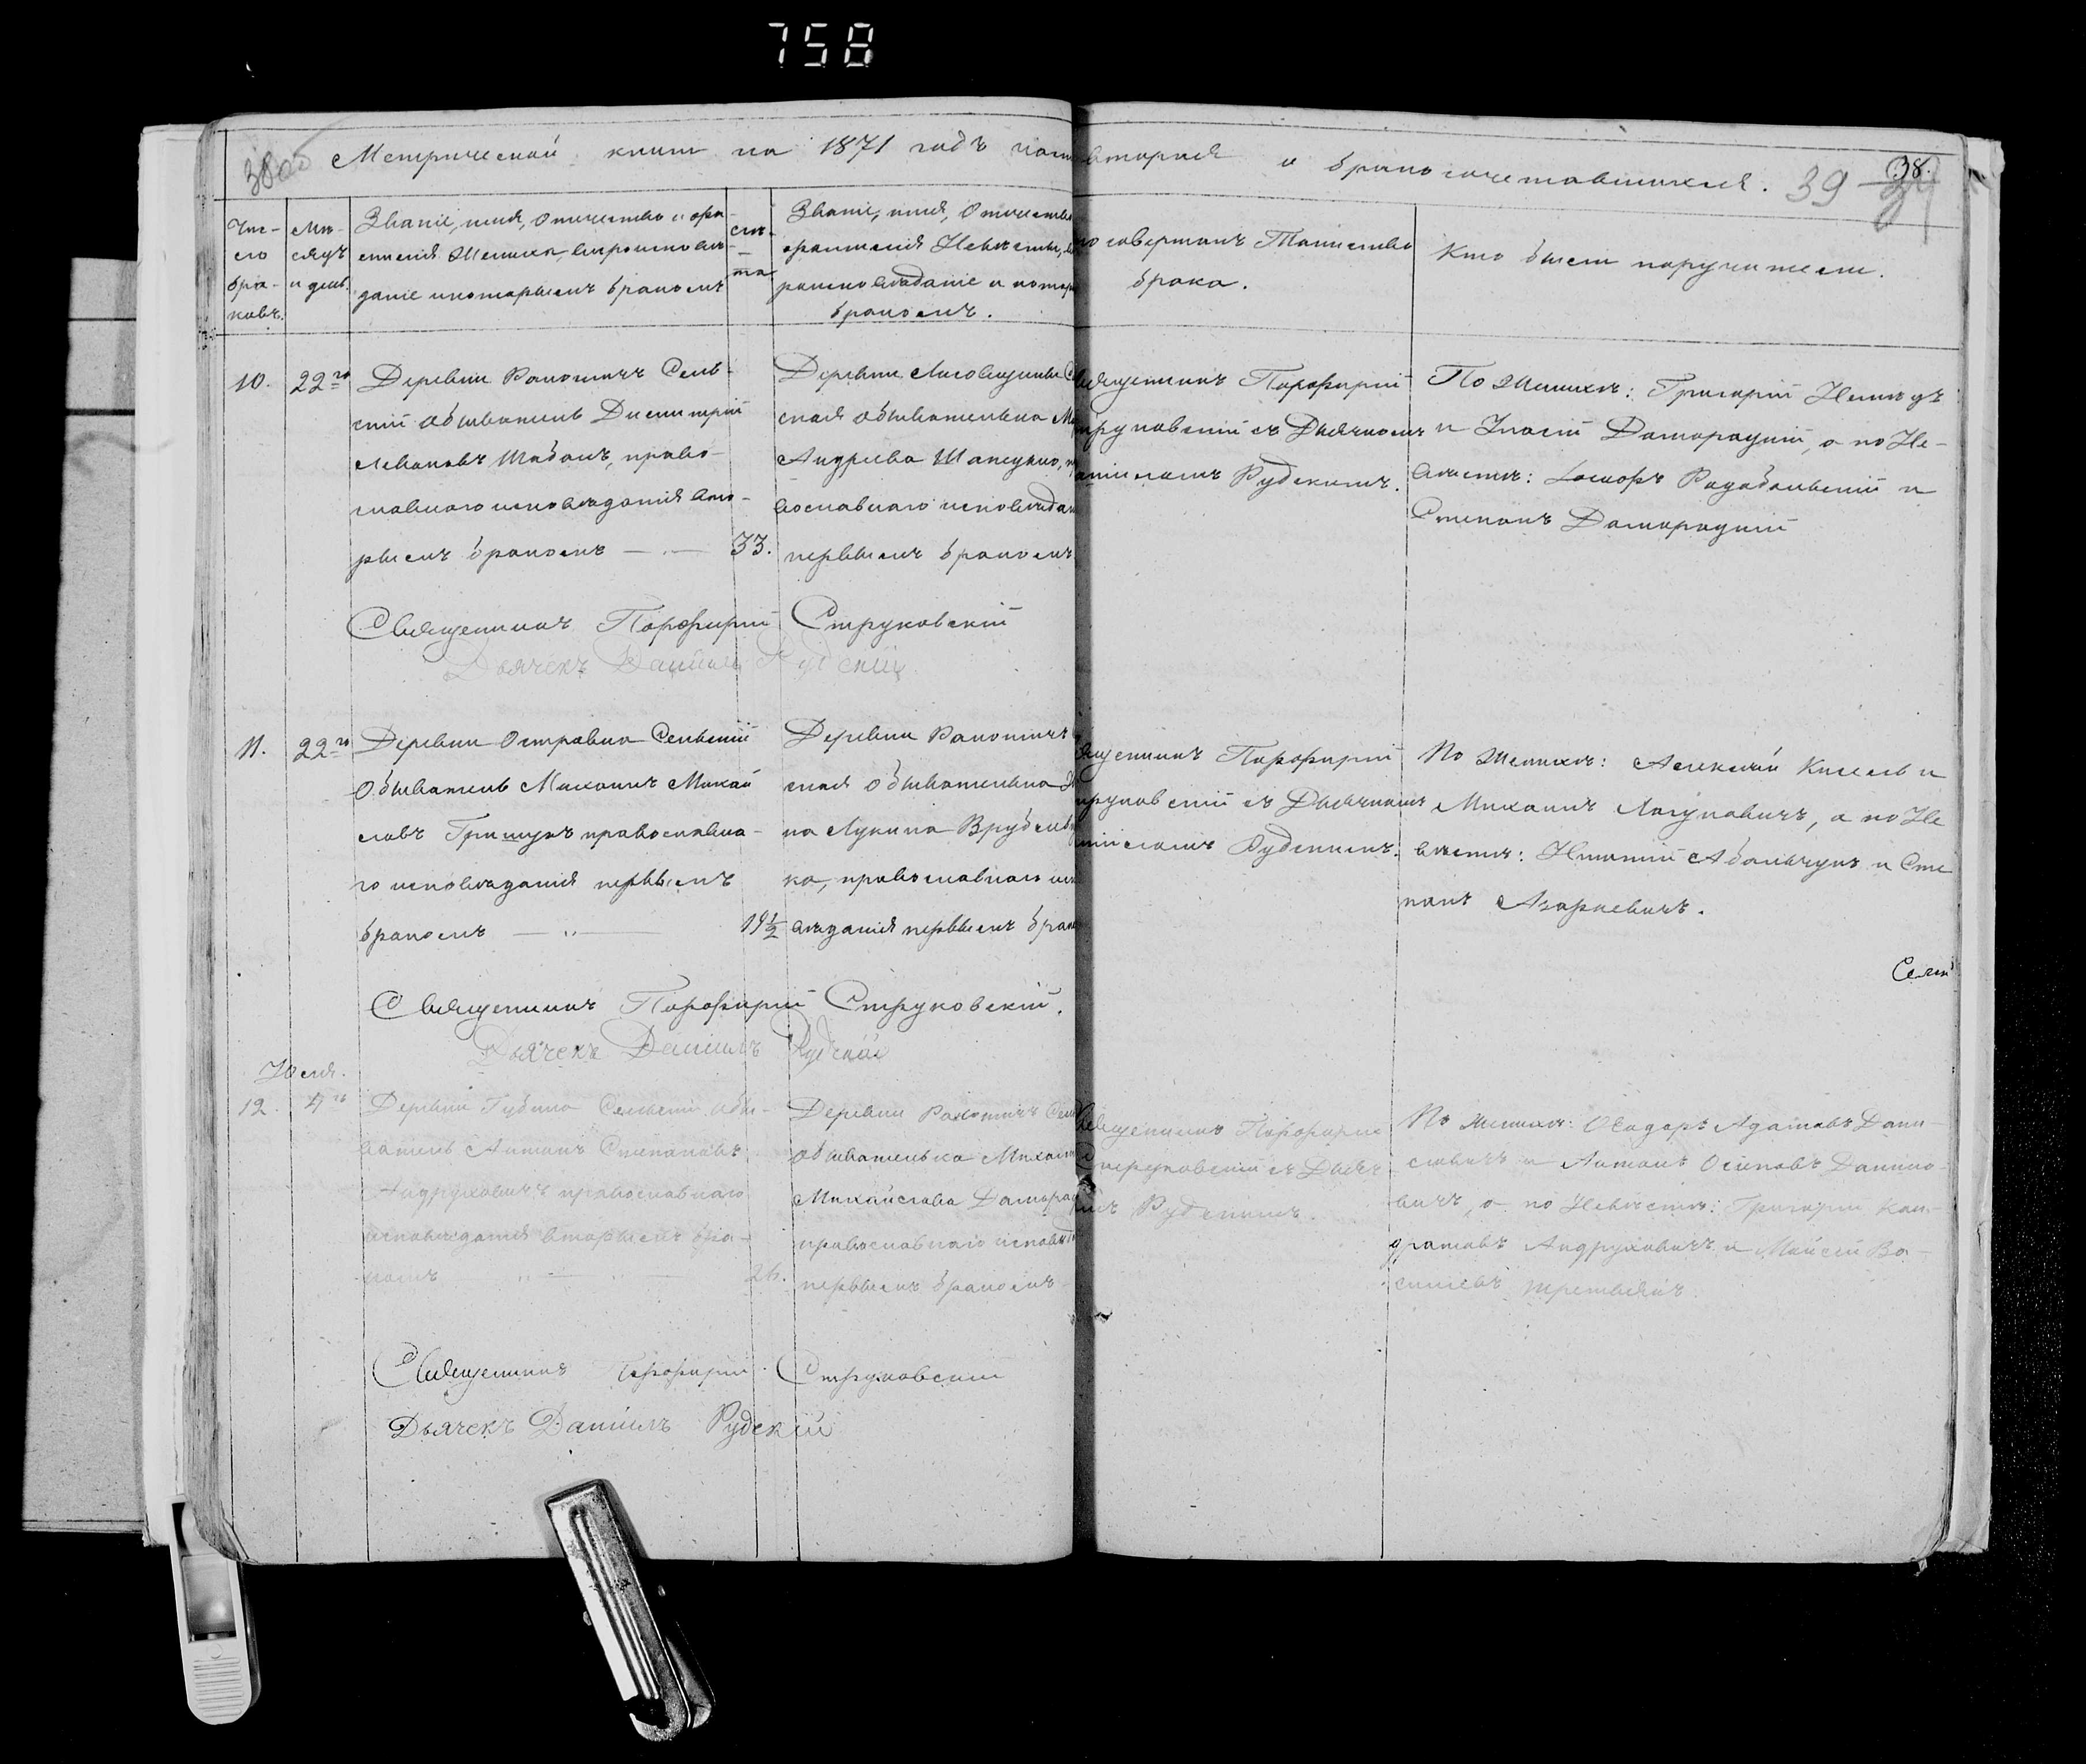 758
Метрической книги на 1871 годъ часть вторая о бракосочетавшихся. 39 38.
Чис-
ло
бра-
ковъ.
Мѣ-
сяцъ
и день.
Званіе, имя, отчество и фа-
милія Жениха, вѣроисповѣ-
даніе и которымъ бракомъ
Званіе, имя, отчество
фамилія Невѣсты,
роисповѣданіе и котор
бракомъ.
го совершалъ Таинство
брака.
Кто были поручители.
10. 22го
Деревни Рахотичъ Сель-
скій обыватель Димитрій
православ-
славнаго исповѣданія вто-
рымъ бракомъ — 33.
Деревни
ская обывателька
Андреева
вославнаго исповѣдан
первымъ бракомъ
Священникъ Порфирій
труковскій съ Дьячкомъ
Рудскимъ.
По Женихѣ: Григорій
и Домарацкій, а по Не-
вѣстѣ: и
Степанъ Домарацкій
Священникъ Порфирій Струковскій
Дьячекъ Даніилъ Рудскій
11. 22го
Деревни Островна Сельскій
обыватель Михаилъ Михай
ловъ Грищукъ православна-
го исповѣданія первымъ
бракомъ — 19½
Деревни Рахотичъ
ская обывателька
на Лукина Врублев
ка, православнаго
вѣданія первымъ брак
щенникъ Порфирій
труковскій съ Дьячкомъ
Рудскимъ.
По Женихѣ: Алексѣй Кисель и
Михаилъ Лагуновичъ, а по Не
вѣстѣ: Игнатій и Сте
панъ Азаркевичъ.
Священникъ Порфирій Струковскій.
Дьячекъ Даніилъ Рудскій
Іюля.
12. 4го
Деревни Губина Сельскій обы-
ватель Антонъ Степановъ
Андруховичъ православнаго
исповѣданія вторымъ бра-
комъ — 26.
Деревни Рахотичъ Сель
обывателька
Михайлова Домарац
православнаго исповѣд
первымъ бракомъ
Священникъ Порфирій
Струковскій съ Дьяч
Рудскимъ.
По Женихѣ: Адамовъ Дани-
левичъ и Антонъ Осиповъ Данило-
вичъ, а по Невѣстѣ: Григорій Кон-
дратовъ Андруховичъ и Мойсей Ва-
силевъ Третьякъ.
Священникъ Порфирій Струковскій
Дьячекъ Даніилъ Рудскій